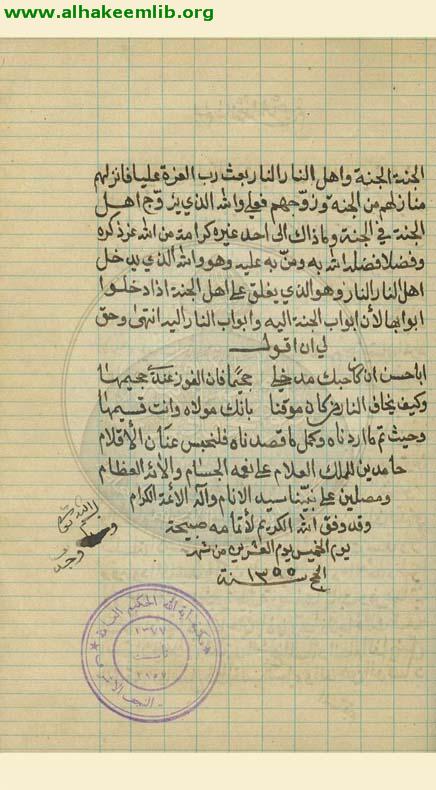 www.alhakeemlib.org
الجنة الجنة واهل النار النار بعث رب العزة عليا فانزلهم
منازلهم من الجنة وزوجهم فعلي والله الذي يزوج اهل
الجنة في الجنة وما ذاك الى احد غيره كرامة من الله عز ذكره
وفضلا فضله الله به ومنّ به عليه وهو والله الذي يدخل
اهل النار النار وهو الذي يغلق على اهل الجنة اذا دخلوا
ابوابها لأن ابواب الجنة اليه وابواب النار اليه انتهى وحق
لي ان اقول
اباحسن ان كان حبك مدخلي جحيمًا فان الفوز عندي جحيمها
وكيف يخاف النار من كان موقنا بانك مولاه وانت قسيمها
وحيث تم ما اردناه وكمل ما قصدناه فلنحبس عنان الأقلام
حامدين للملك العلام على نعمه الجسام والائه العظام
ومصلين على نبيّنا سيد الانام وآله الائمة الكرام
وقد وفق الله الكريم لأتمامه صبيحة
يوم الخميس يوم العشرين من شهر
سنة ١٣٥٥
مكتبة اية الله الحكيم العامة
١٣٧٧
النجف الاشرف